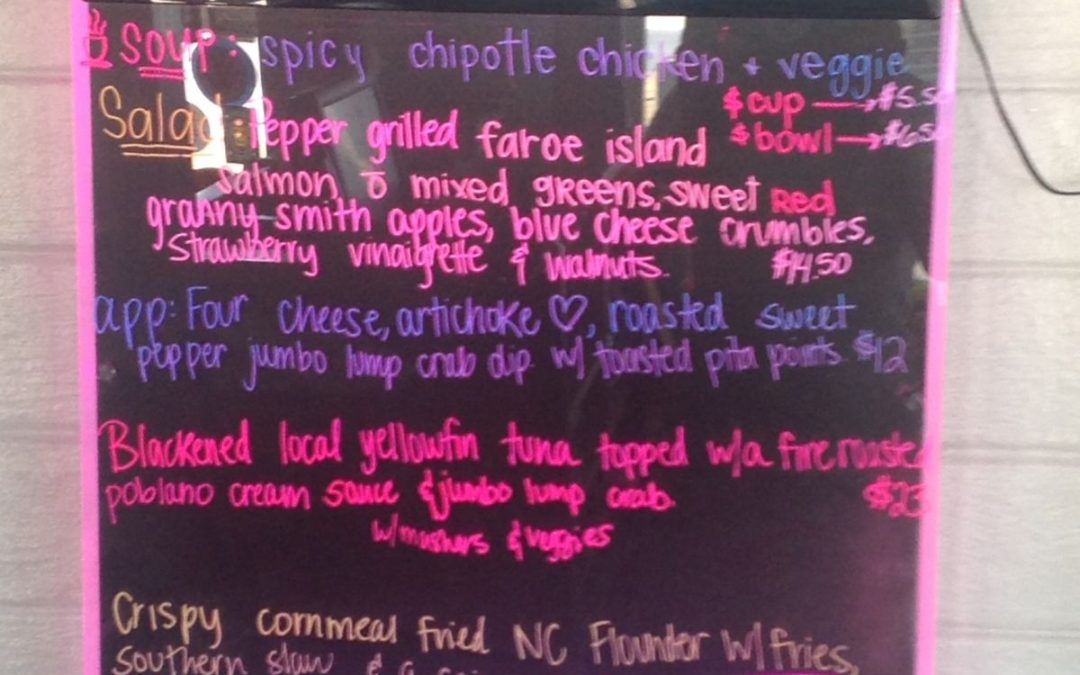 Soup: spicy chipotle chicken + veggie
$ cup → $5.50
Salad: Pepper grilled faroe island
$ bowl → $6.50
salmon c̄ mixed greens, sweet Red
granny smith apples, blue cheese crumbles,
Strawberry vinaigrette & walnuts. $14.50
app: Four cheese, artichoke ♡, roasted sweet
pepper jumbo lump crab dip w/ toasted pita points $12
Blackened local yellowfin tuna topped w/a fire roasted
poblano cream sauce & jumbo lump crab. $23
w/mashers & veggies
Crispy cornmeal fried NC Flounder w/ fries,
southern slaw & a